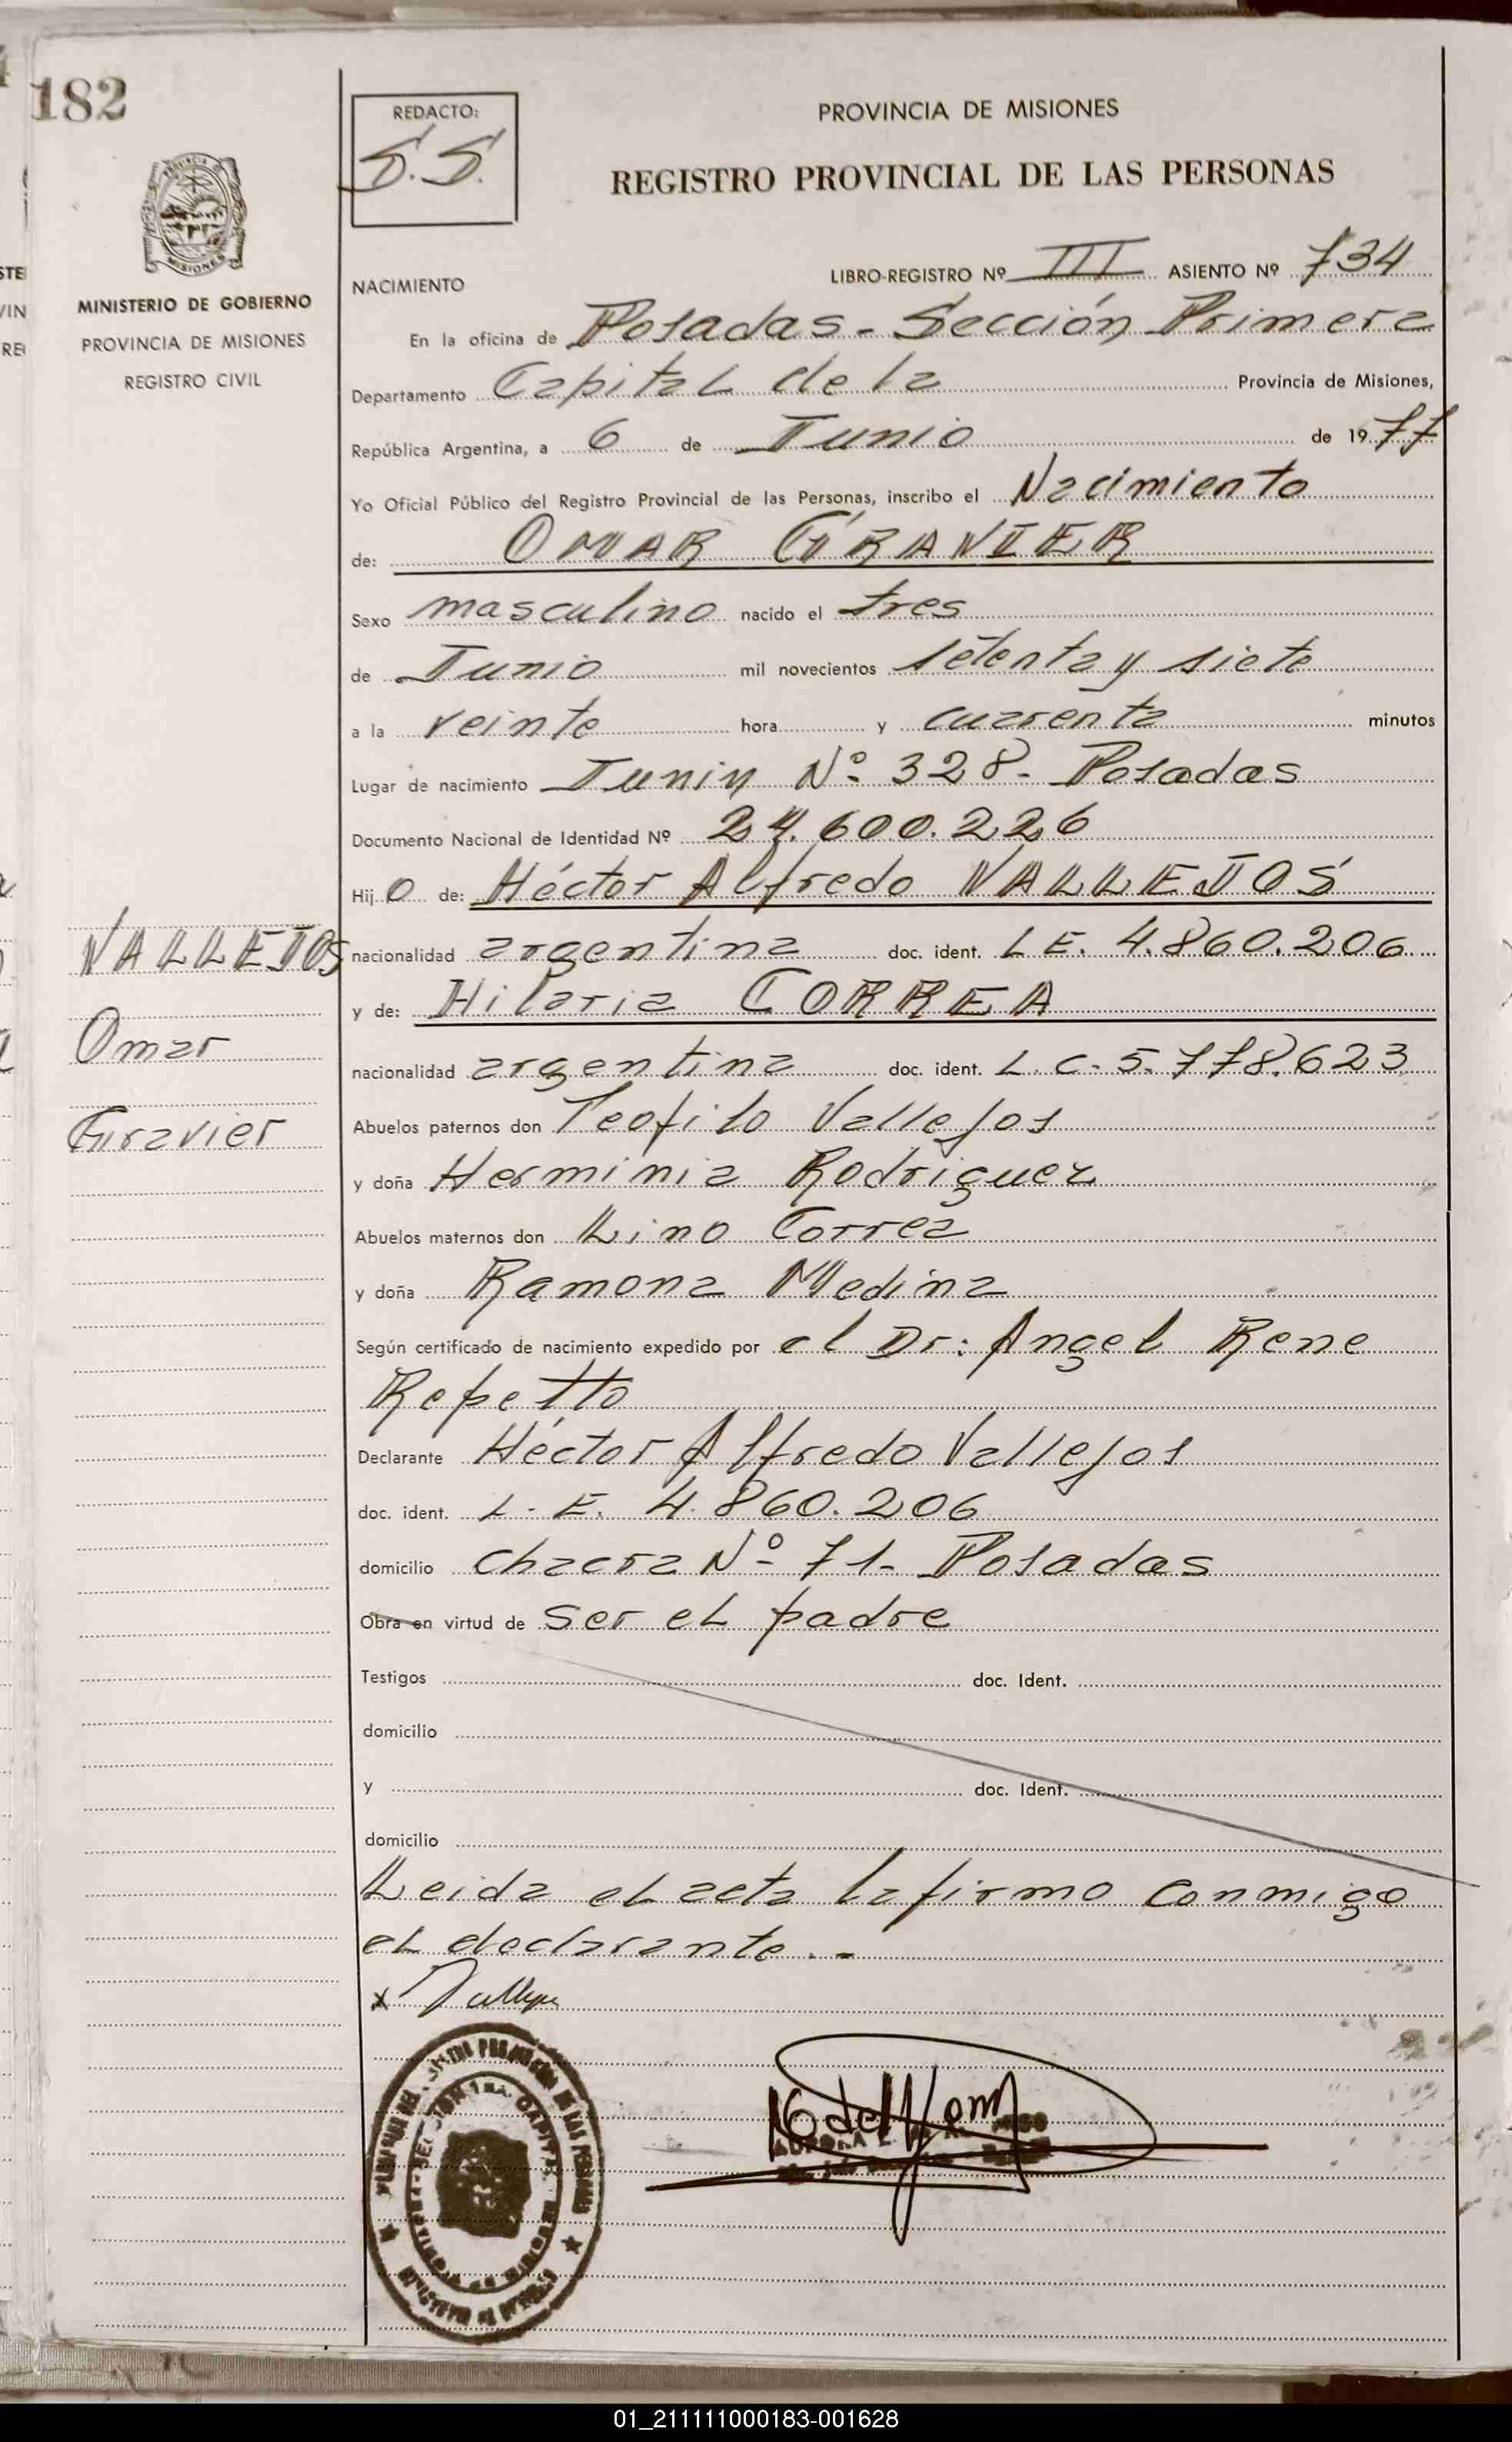 182
REDACTO:
S.S.
PROVINCIA DE MISIONES
REGISTRO PROVINCIAL DE LAS PERSONAS
MISIONES
MINISTERIO DE GOBIERNO
PROVINCIA DE MISIONES
REGISTRO CIVIL
LIBRO-REGISTRO Nº III ASIENTO Nº 734
NACIMIENTO
En la oficina de Posadas - Sección Primera
Departamento Capital de la Provincia de Misiones,
República Argentina, a 6 de Junio de 1977
Yo Oficial Público del Registro Provincial de las Personas, inscribo el Nacimiento
de: OMAR GRAVIER
Sexo masculino nacido el tres
de Junio mil novecientos setenta y siete
a la veinte hora y cuarenta minutos
Lugar de nacimiento Junin Nº 328 - Posadas
Documento Nacional de Identidad Nº 24.600.226
Hijo de: Héctor Alfredo VALLEJOS
nacionalidad argentina doc. ident. L E. 4.860.206
y de: Hilaria CORREA
nacionalidad argentina doc. ident. L. C. 5.778.623
Abuelos paternos don Teofilo Vallejos
y doña Herminia Rodriguez
Abuelos maternos don Lino Correa
y doña Ramona Medina
Según certificado de nacimiento expedido por el Dr: Angel Rene
Repetto
Declarante Héctor Alfredo Vallejos
doc. ident. L. E. 4.860.206
domicilio chacra Nº 71- Posadas
Obra en virtud de ser el padre
Testigos doc. Ident.
domicilio
y doc. Ident.
domicilio
Leida el acta la firmo conmigo
el declarante.-
x
VALLEJOS
Omar
Gravier
01_211111000183-001628